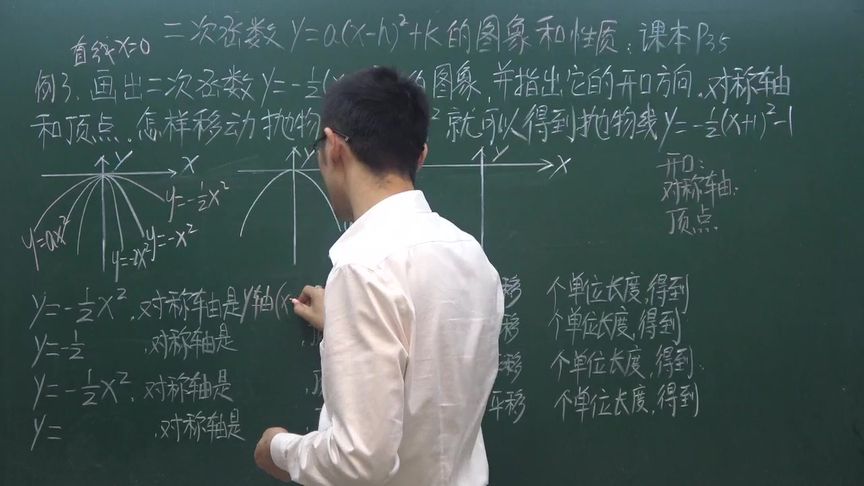 二次函数y=a(x-h)²+k的图象和性质:课本P35
直线x=0
例3.画出二次函数y=-½ 图象,并指出它的开口方向.对称轴
和顶点.怎样移动抛物 ² 就可以得到抛物线y=-½(x+1)²-1
y x
y x
y x
y=ax²
y=-2x²
y=-x²
y=-½x²
开口:
对称轴:
顶点.
y=-½x²,对称轴是y轴(x 移 个单位长度,得到
y=-½ ,对称轴是 移 个单位长度,得到
y=-½x²,对称轴是 ,顶 平移 个单位长度,得到.
y= ,对称轴是 平移 个单位长度,得到